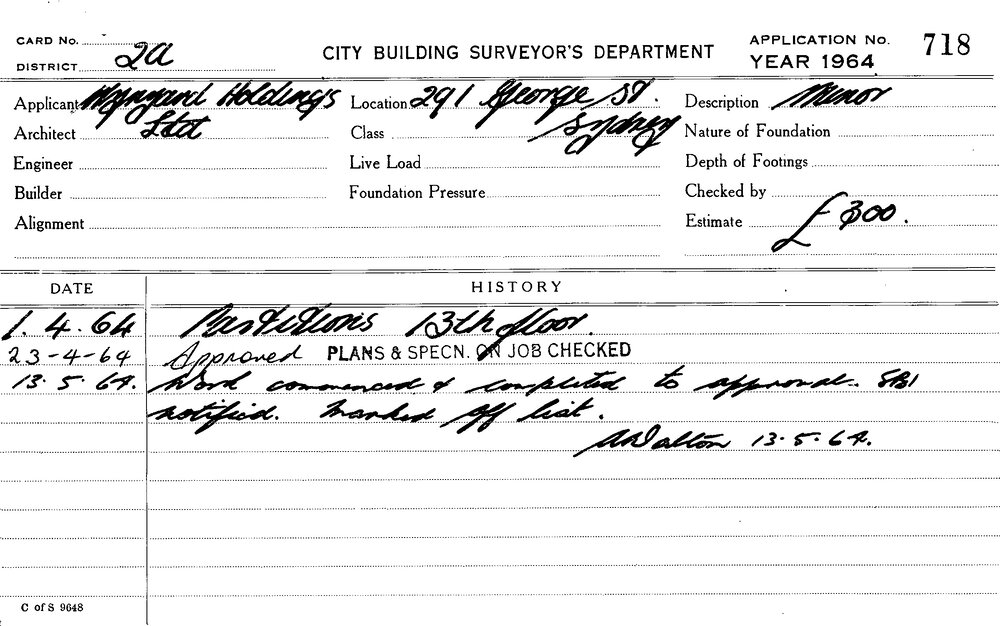 CARD No.
DISTRICT 2a
CITY BUILDING SURVEYOR'S DEPARTMENT
APPLICATION No. 718
YEAR 1964
Applicant Wynyard Holdings Location 291 George St. Description Minor
Architect Ltd Class Sydney Nature of Foundation
Engineer Live Load Depth of Footings
Builder Foundation Pressure Checked by
Alignment Estimate £300.
DATE HISTORY
1.4.64 Partitions 13th floor.
23-4-64 Approved PLANS & SPECN. ON JOB CHECKED
13.5.64. Work commenced & completed to approval. SBI
notified. Marked off list.
Walton 13.5.64.
C of S 9648